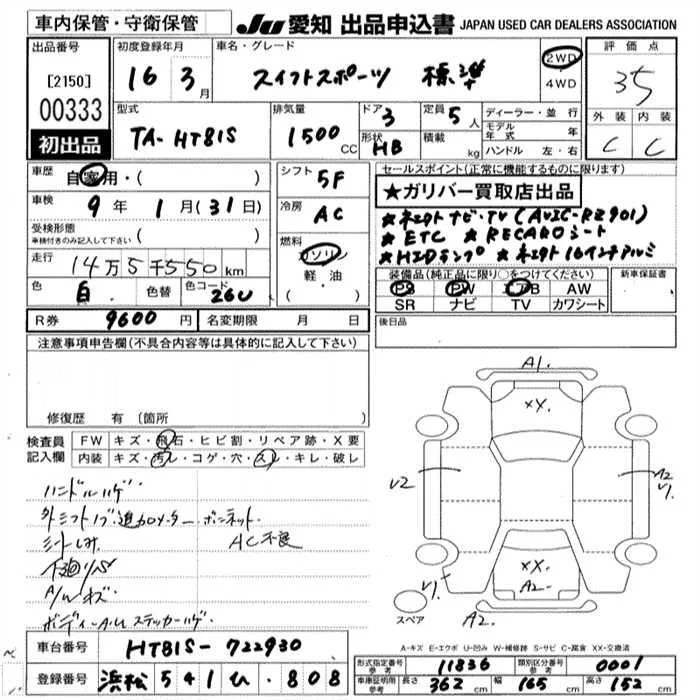 車内保管・守衛保管
JU 愛知 出品申込書 JAPAN USED CAR DEALERS ASSOCIATION
出品番号
[2150]
00333
初出品
初度登録年月
16 3月
車名・グレード
スイフトスポーツ 標準
2WD
4WD
評価点
3.5
外装 内装
C C
型式
TA-HT81S
排気量
1500 CC
ドア 3
形状 HB
定員 5人
積載 kg
ディーラー・並行
モデル年式 年
ハンドル 左・右
車歴 自家用・( )
車検 9年1月(31日)
受検形態
車検付きのみ記入して下さい ( )
走行 14万5千550km
色 白 色替 色コード 26U
シフト 5F
冷房 AC
燃料 ガソリン
軽・油
( )
セールスポイント(正常に機能するものに限ります)
★ガリバー買取店出品
★ネエクト ナビ・TV(AVIC-RZ901)
★ETC ★RECAROシート
★HIDランプ ★ネエクト 16インチアルミ
装備品(純正品に限り○をつけてください)
PS PW AB AW
SR ナビ TV カワシート
新車保証書
R券 9600円 名変期限 月 日
後日品
注意事項申告欄(不具合内容等は具体的に記入して下さい)
修復歴 有(箇所
検査員記入欄
FW キズ・飛石・ヒビ割・リペア跡・X要
内装 キズ・汚レ・コゲ・穴・スレ・キレ・破レ
ハンドルハゲ
外シフトノブ・追加メーター・ボンネット.
シートしみ AC不良
下廻りサビ
A/Wキズ
ボディーAUステッカーハゲ
A1.
XX.
V2
A2
V1.
XX.
A2-
V1.
A2.
スペア
A-キズ E-エクボ U-凹み W-補修跡 S-サビ C-腐食 XX-交換済
車台番号 HT81S-722930
登録番号 浜松 541 ひ・808
形式指定番号 参考 11836 類別区分番号 参考 0001
車庫証明用 参考 長さ 362cm 幅 165cm 高さ 152cm